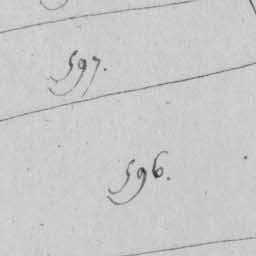 597.
596.